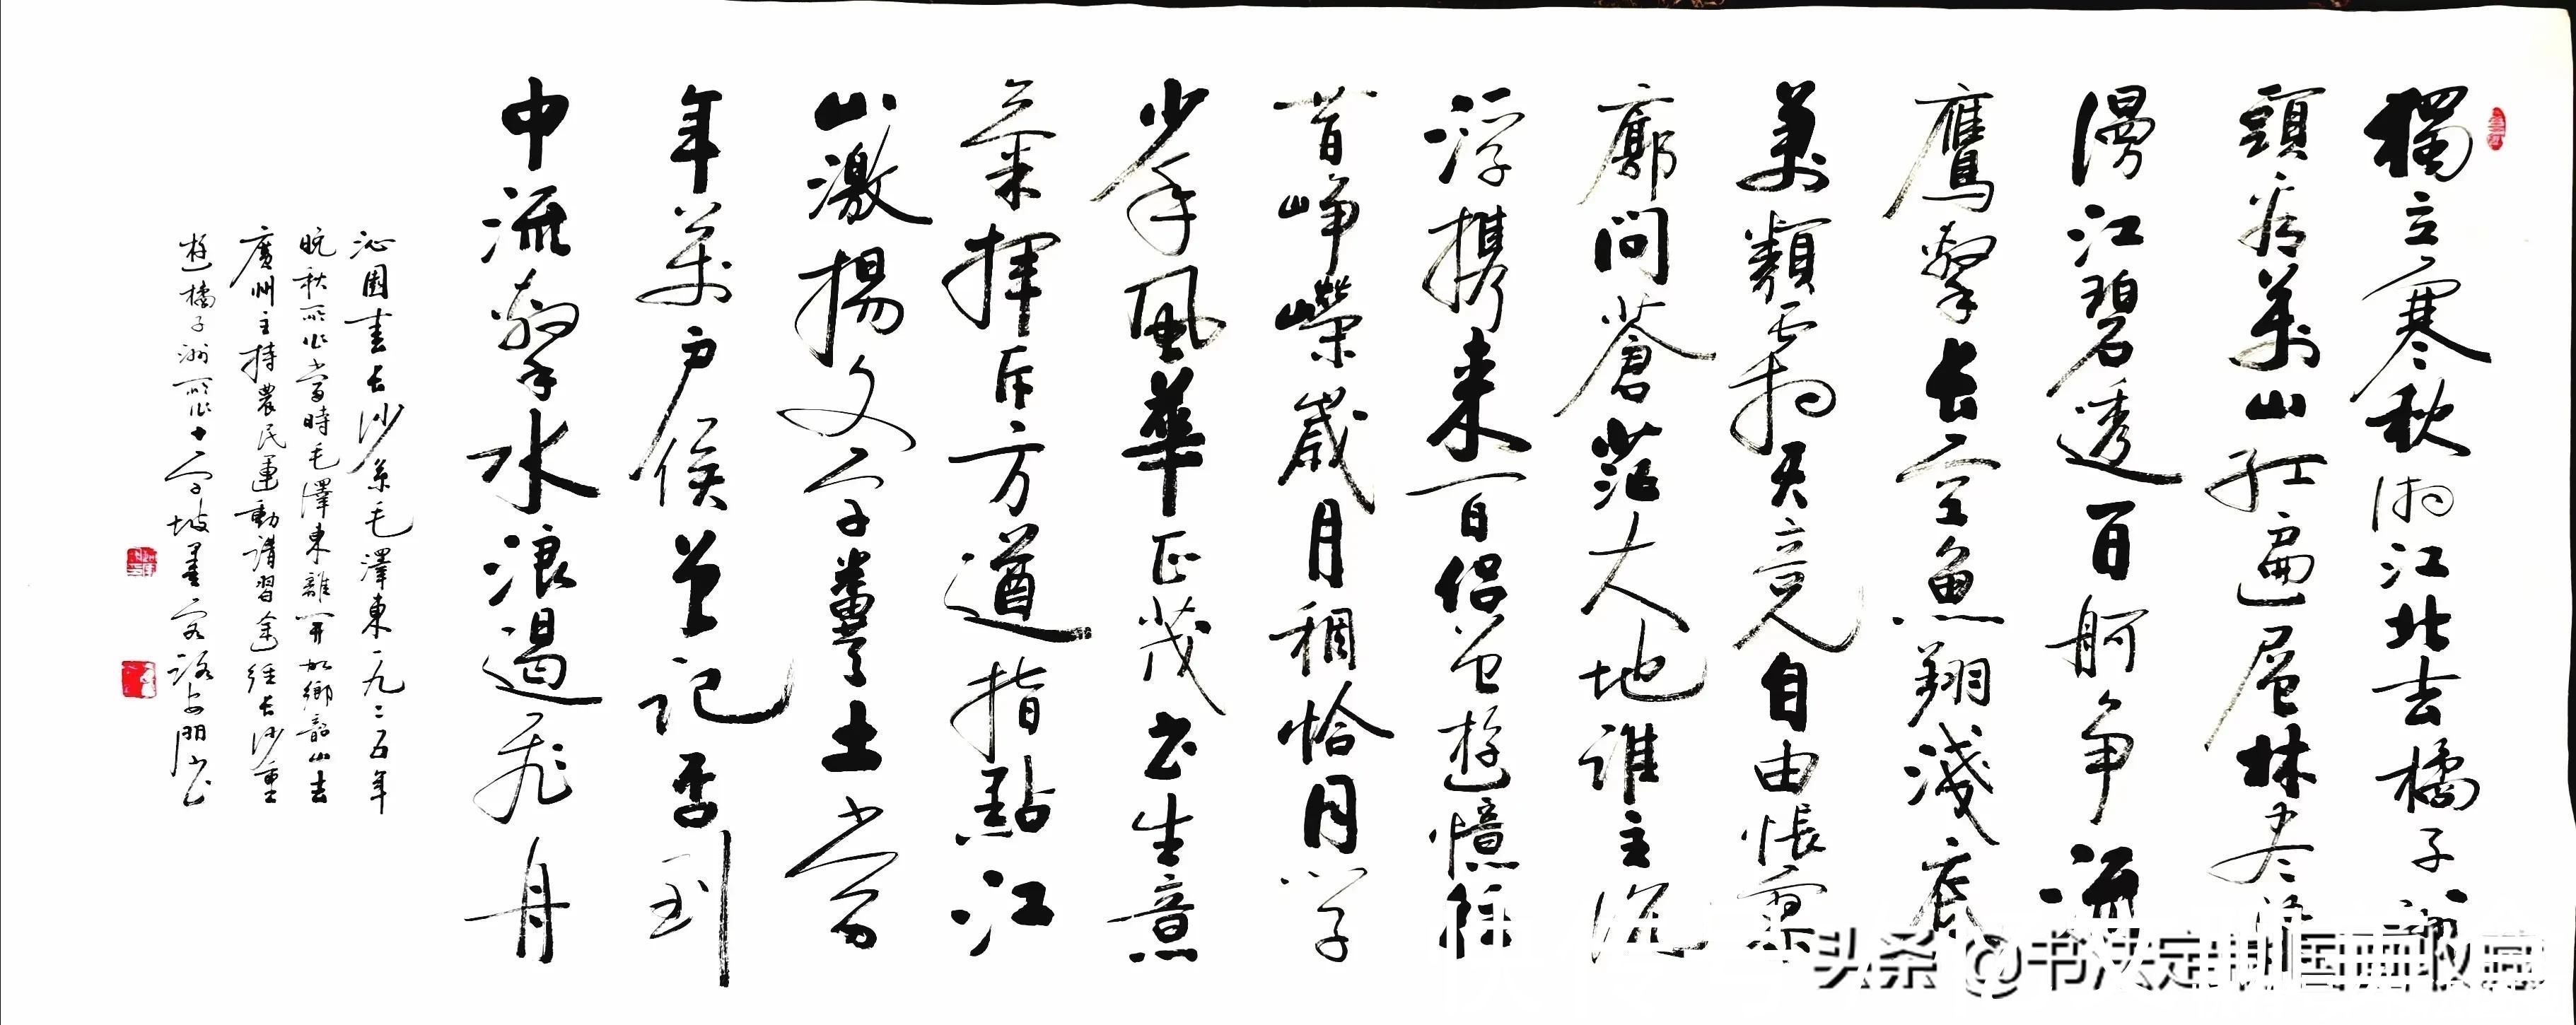 獨立寒秋湘江北去橘子洲
頭看萬山红遍層林尽染
漫江碧透百舸争流
鷹擊長空魚翔淺底
萬類霜天競自由悵寥
廓問蒼茫大地誰主沉
浮携来百侣曾遊憶往
昔峥嶸歲月稠恰同学
少年風華正茂书生意
氣揮斥方遒指點江
山激揚文字糞土當
年萬户侯曾記否到
中流擊水浪遏飛舟
沁園春長沙系毛澤東一九二五年
晚秋所作當時毛澤東離開故鄉韶山去
廣州主持農民運動講習途經長沙重
遊橘子洲所作十字坡墨客
头条 @书法定制国画收藏